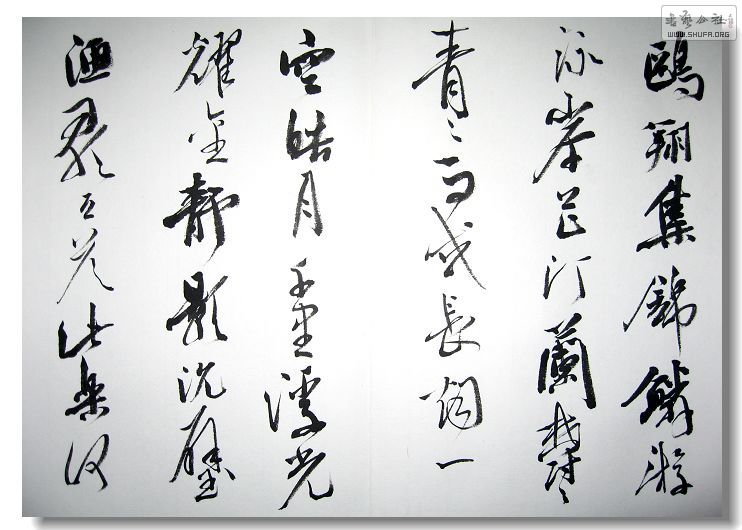 鷗翔集錦鱗游
泳岸芷汀蘭鬱〻
青〻而或長烟一
空皓月千里浮光
耀金靜影沉璧
漁歌互答此樂何
書藝公社
WWW.SHUFA.ORG